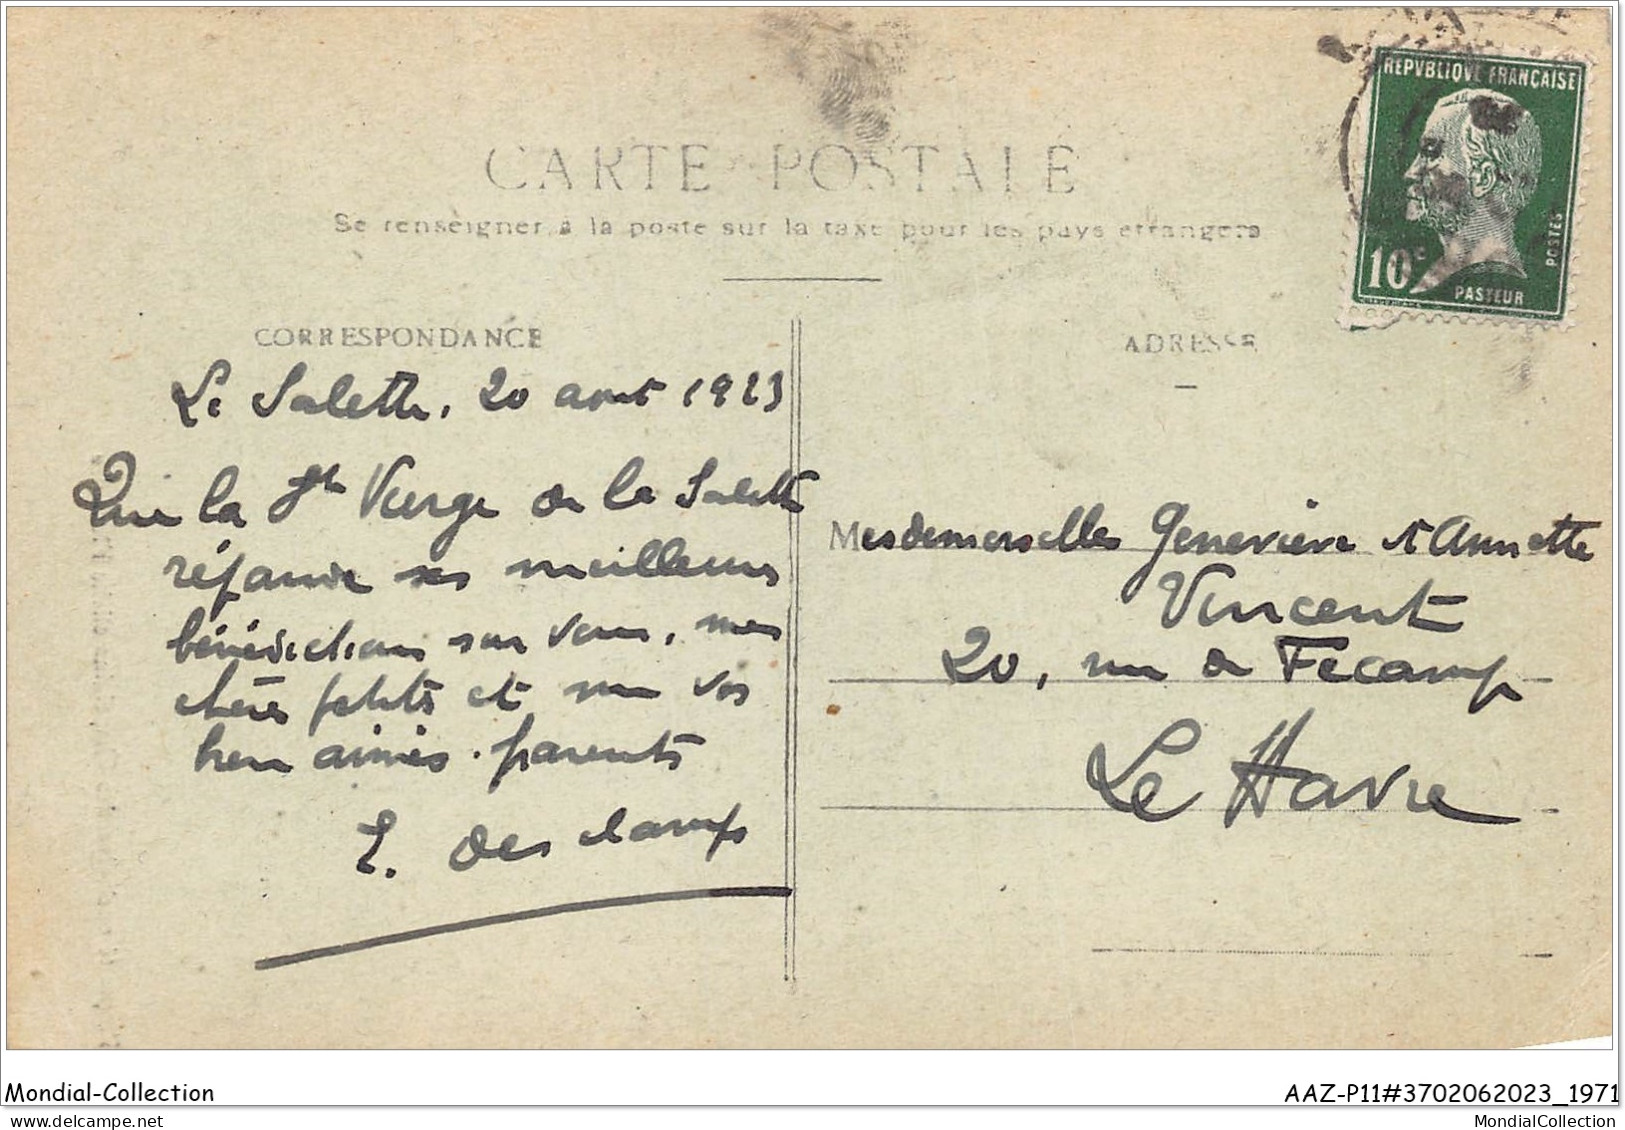 CARTE POSTALE
Se renseigner à la poste sur la taxe pour les pays étrangers
REPVBLIQVE FRANÇAISE
10c
POSTES
PASTEUR
CORRESPONDANCE
La Salette, 20 août 1923
Que la Ste Vierge de la Salette
répande ses meilleures
bénédictions sur vous, mes
chères petites et sur vos
bien aimés parents
E. Deschamps
ADRESSE
Mesdemoiselles Geneviève et Annette
Vincent
20, rue de Fécamp
Le Havre
Mondial-Collection
AAZ-P11#3702062023_1971
MondialCollection